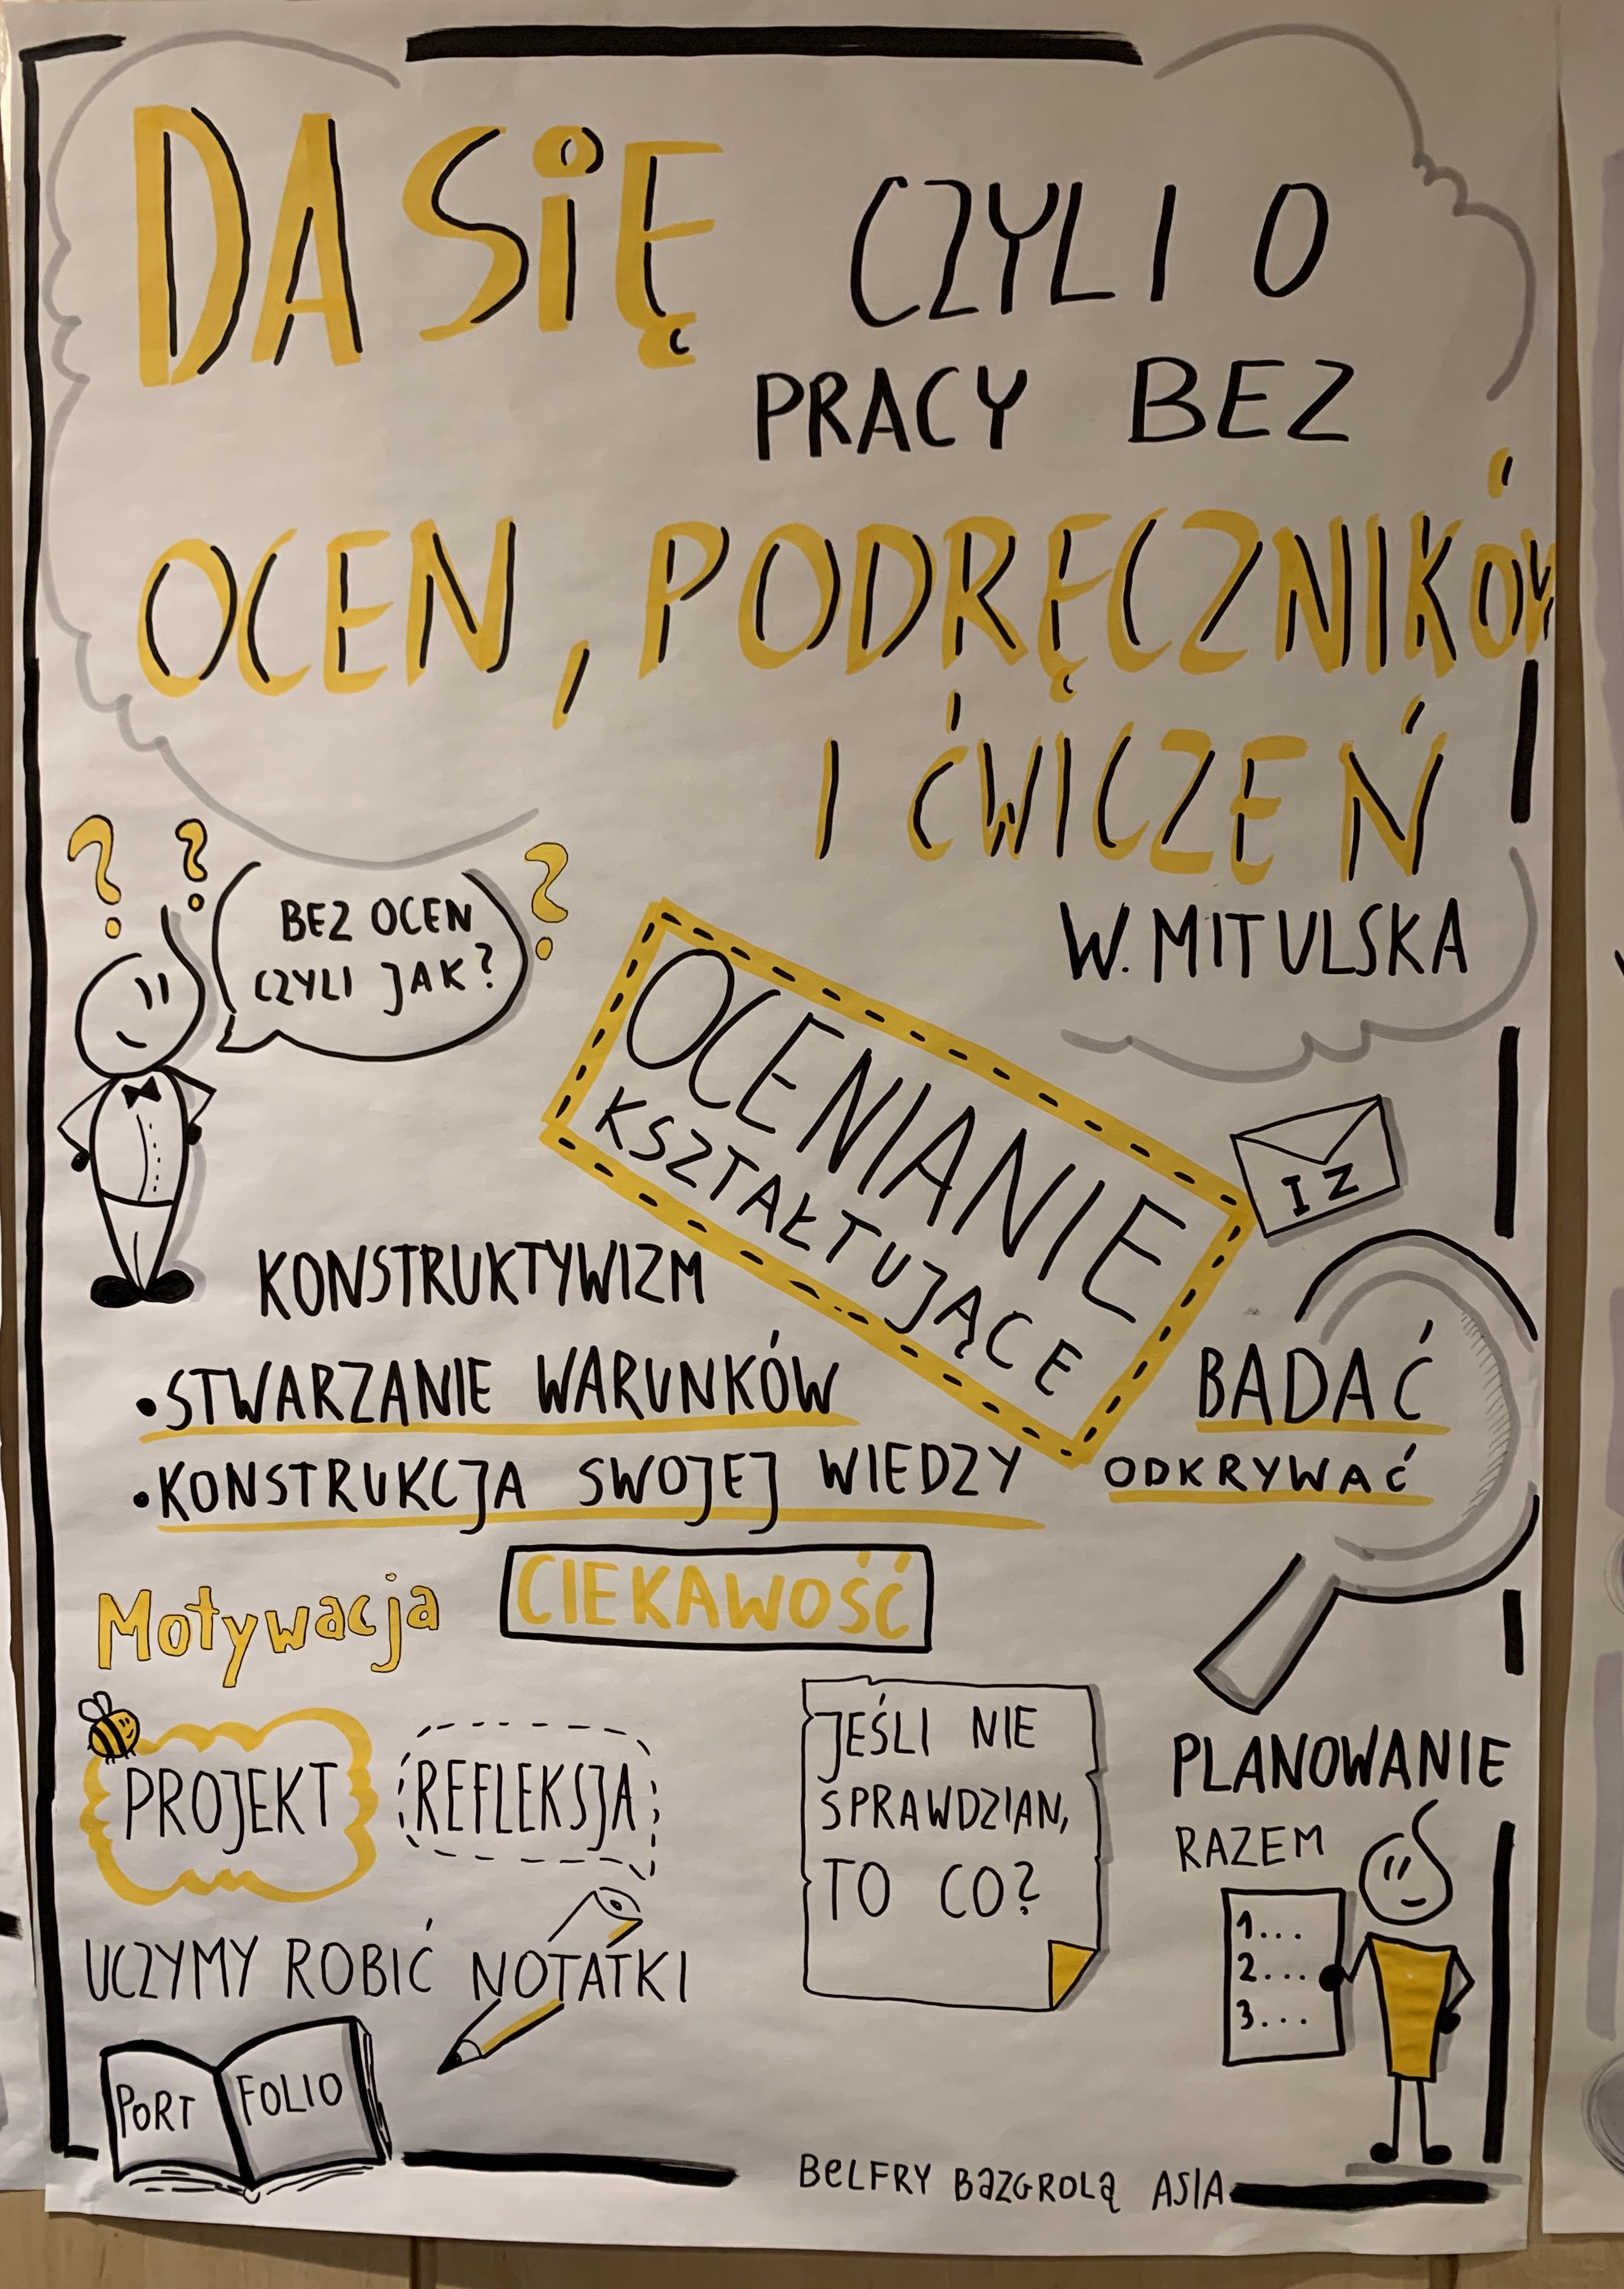 DA SiĘ CZYLI O
PRACY BEZ
OCEN, PODRĘCZNIKÓW
I ĆWICZEŃ
W. MITULSKA
? ? ?
BEZ OCEN
CZYLI JAK?
OCENIANIE
KSZTAŁTUJĄCE
IZ
KONSTRUKTYWIZM
•STWARZANIE WARUNKÓW
•KONSTRUKCJA SWOJEJ WIEDZY
BADAĆ
ODKRYWAĆ
Motywacja
CIEKAWOŚĆ
PROJEKT
REFLEKSJA
JEŚLI NIE
SPRAWDZIAN,
TO CO?
PLANOWANIE
RAZEM
1...
2...
3...
UCZYMY ROBIĆ NOTATKI
PORT FOLIO
BeLFRY BaZGROLą ASIA